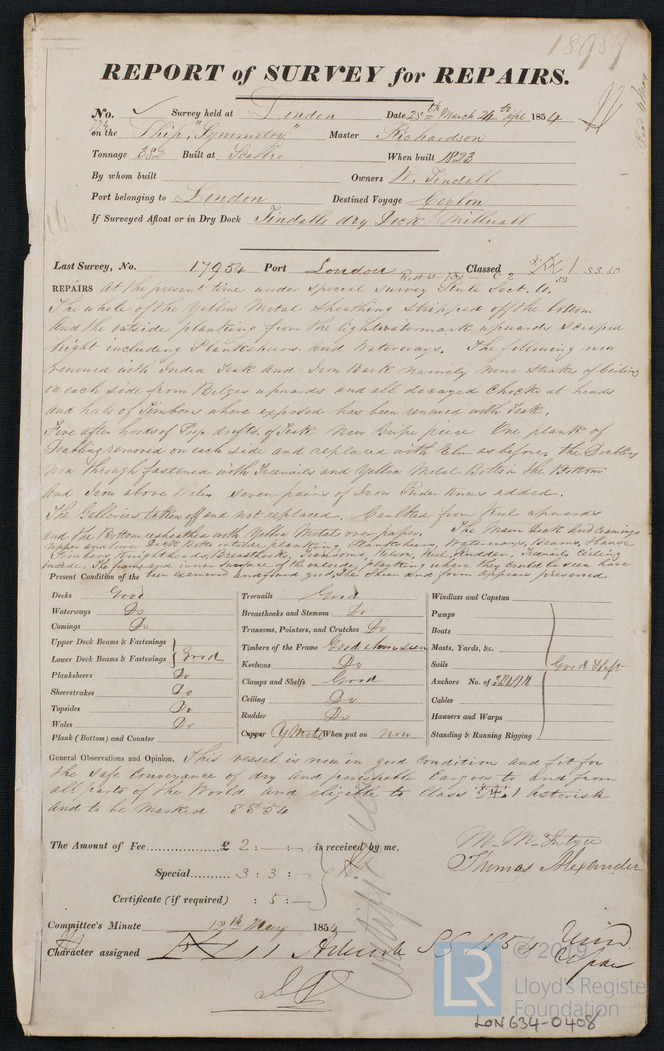 18989
REPORT of SURVEY for REPAIRS.
No. Survey held at London Date 28th March 24th Apl 1854
on the Ship "Symmetry" Master Richardson
Tonnage 382 Built at Scarbro When built 1823
By whom built Owners W. Tindall
Port belonging to London Destined Voyage Ceylon
If Surveyed Afloat or in Dry Dock Tindalls dry Dock Millwall
Last Survey, No. 17954 Port London Classed 1 SS.50
REPAIRS At the present time under special Survey Rule Sect.
The whole of the Yellow Metal Sheathing stripped off the bottom
and the outside planking from the light watermark upwards scraped
bright including Planksheers and Waterways. The following now
renewed with India Teak and Iron Bark namely Nine Strakes of Ceiling
on each side from Bilges upwards and all decayed Chocks at heads
and heels of Timbers where exposed has been renewed with Teak.
Five after hoods of Poop drifts, of Teak New Gripe piece One plank of
Doubling removed on each side and replaced with Elm as before, the Doubling
now through fastened with Treenails and Yellow Metal Bolts in the Bottom
and Iron above Wales Seven pairs of Iron Rider Knees added.
The Galleries taken off and not replaced. Caulked from keel upwards
and the Bottom resheathed with Yellow Metal over paper. The Main Deck and Comings
upper and lower Deck Beams outside planking, Planksheers, Waterways, Beams, Hawse
Timbers, Knightheads, Breasthooks, Transoms, Kelson, Keel, Rudder, Treenails Ceiling
inside. The frame and inner surface of the outside planking where they could be seen have
Present Condition of the been examined and found good, the Sheer and form appears preserved
Decks Good
Waterways Do
Comings Do
Upper Deck Beams & Fastenings
Lower Deck Beams & Fastenings } Good
Planksheers Do
Sheerstrakes Do
Topsides Do
Wales Do
Plank (Bottom) and Counter
Treenails Good
Breasthooks and Stemson Do
Transoms, Pointers, and Crutches Do
Timbers of the Frame Good where seen
Keelsons Do
Clamps and Shelfs Good
Ceiling Do
Rudder Do
Copper Y Metal When put on now
Windlass and Capstan
Pumps
Boats
Masts, Yards, &c.
Sails Good
Anchors No. of
Cables
Hawsers and Warps
Standing & Running Rigging
General Observations and Opinion. This vessel is now in good condition and fit for
the safe conveyance of dry and perishable Cargoes to and from
all parts of the World and eligible to Class 1 Asterisk
and to be Marked SS 54
The Amount of Fee £ 2 : - : - is received by me,
Special 3 : 3 : -
Certificate (if required) : 5 : -
M. McIntyre
Thomas Alexander
Committee's Minute 12th May 1854
Character assigned 1 SS 1854
© 2019
LR
Lloyd's Register
Foundation
LON634-0408